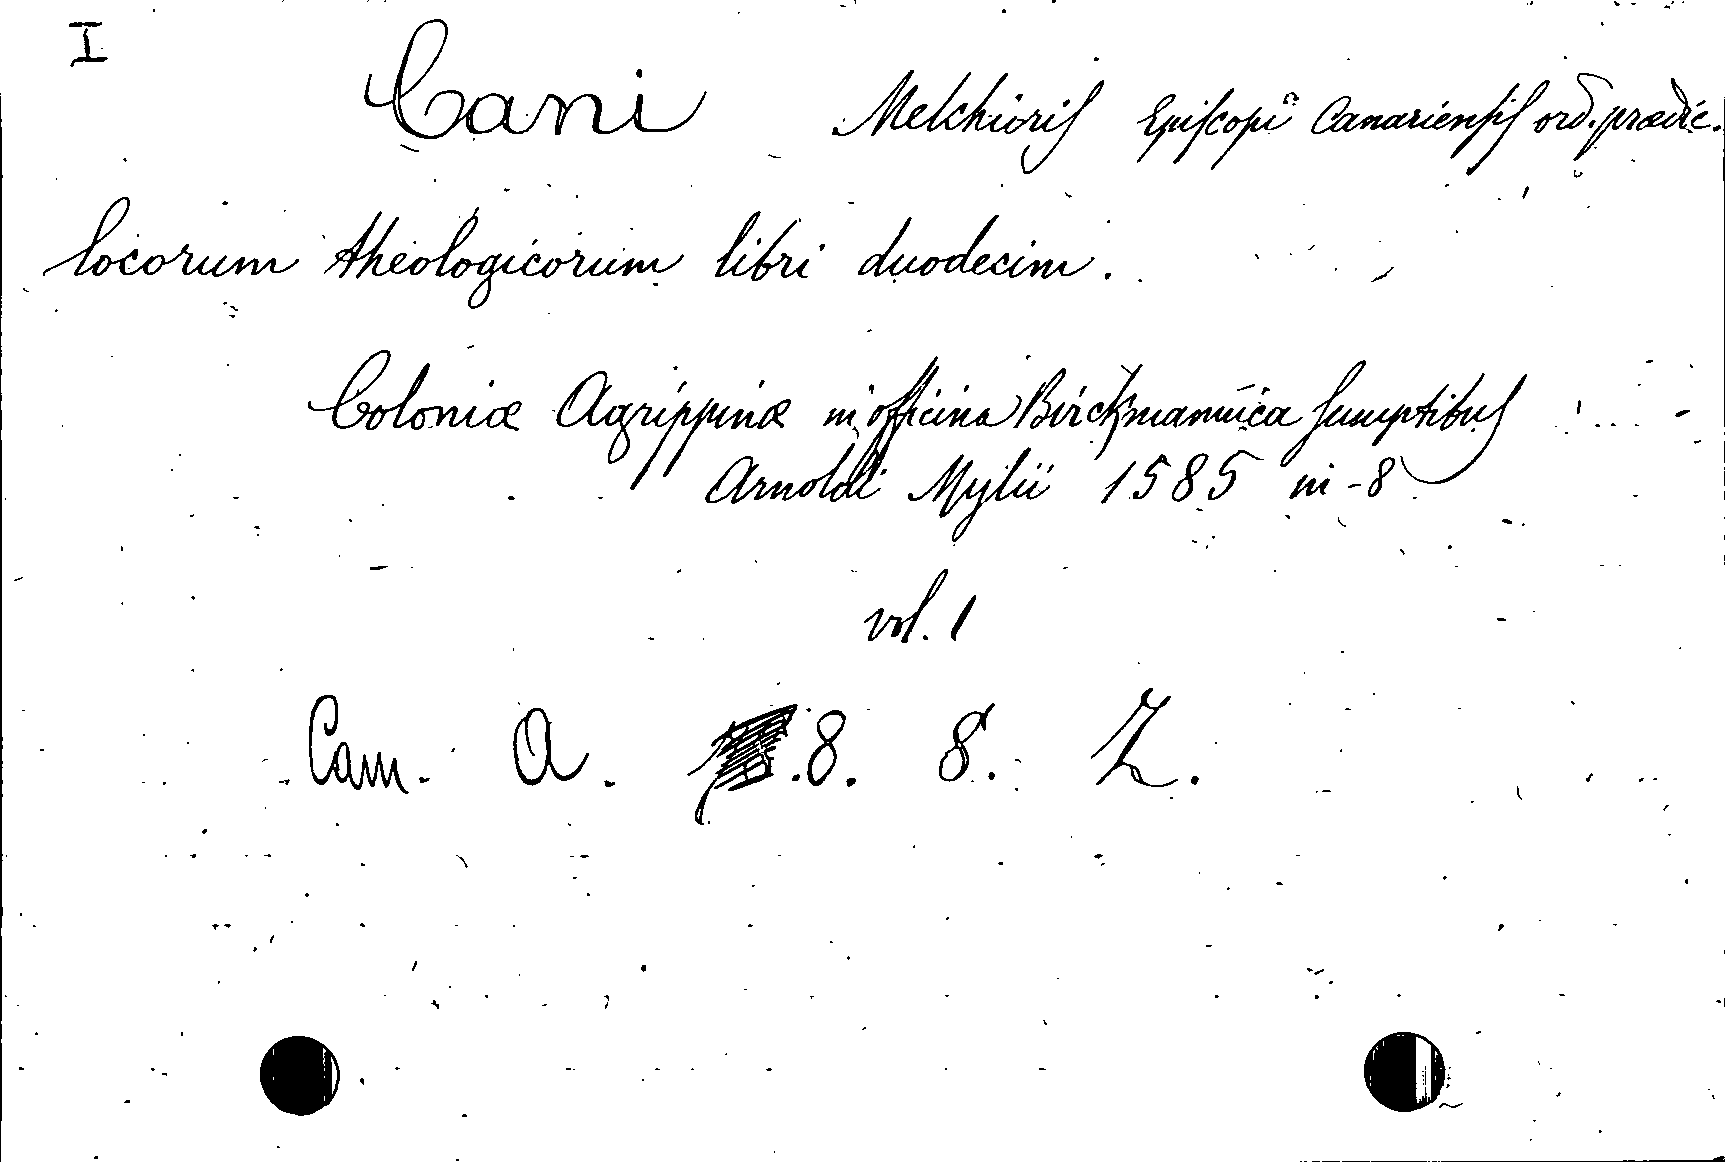 I
Cani Melchioris Episcopi Canariensis ord. prædic.
locorum theologicorum libri duodecim.
Coloniæ Agrippinæ in officina Birckmannica sumptibus
Arnoldi Mylii 1585 in-8
vol. 1
Cam. A. .8. 8. Z.